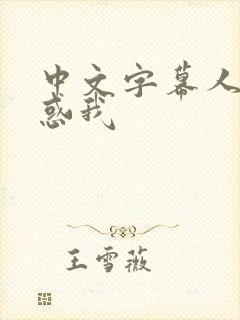 中文字幕人
惑我
王雪薇